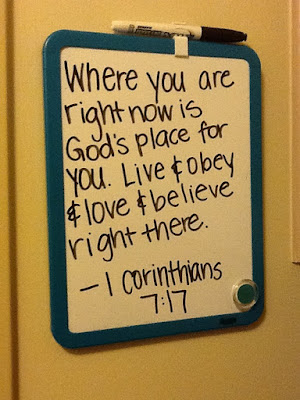 Where you are
right now is
God's place for
you. Live & obey
& love & believe
right there.
- 1 corinthians
7:17